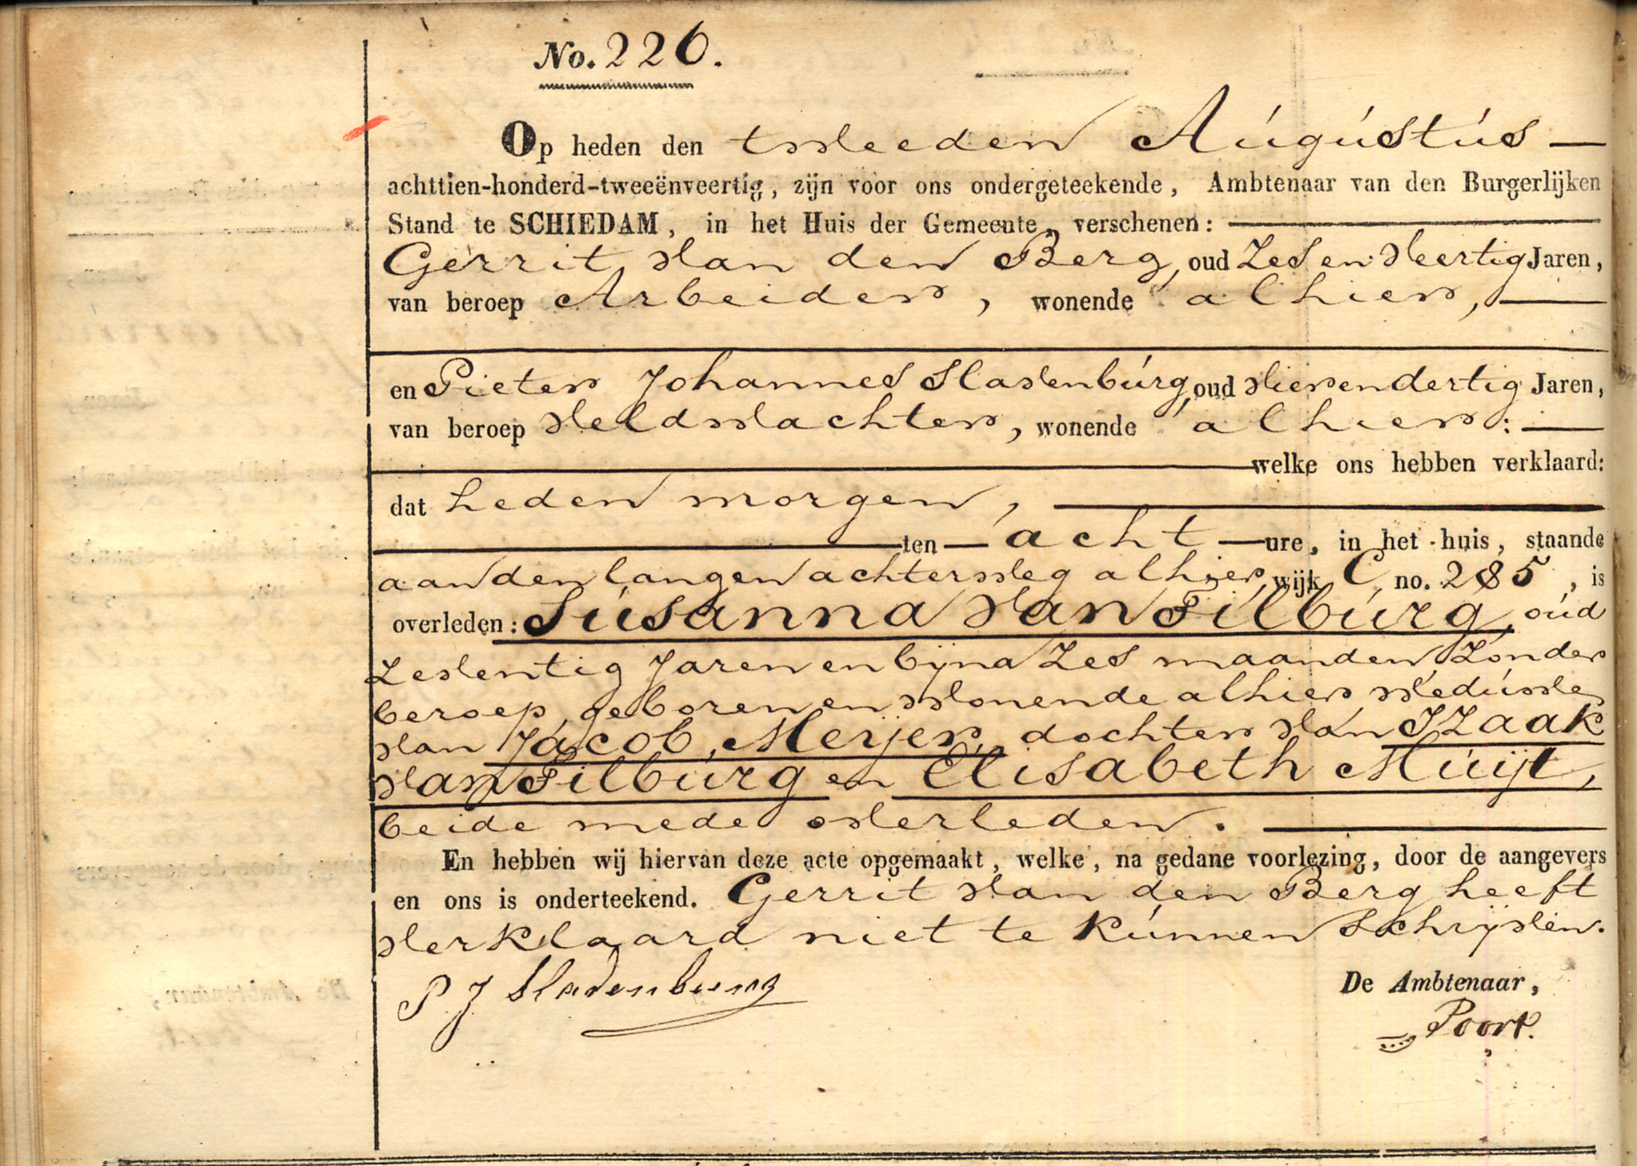 No. 226.
Op heden den tweeden Augustus —
achttien-honderd-tweeënveertig, zijn voor ons ondergeteekende, Ambtenaar van den Burgerlijken
Stand te SCHIEDAM, in het Huis der Gemeente, verschenen:
Gerrit van den Berg, oud Zes en veertig Jaren,
van beroep Arbeider, wonende alhier,
en Pieter Johannes Slavenburg, oud vierendertig Jaren,
van beroep Veldwachter, wonende alhier:
welke ons hebben verklaard:
dat heden morgen,
ten acht ure, in het huis, staande
aan den langen achterweg alhier, wijk C, no. 285, is
overleden: Susanna van Tilburg, oud
Zeventig Jaren en bijna Zes maanden Zonder
beroep, geboren en wonende alhier, weduwe
van Jacob Meijer, dochter van IZaak
van Tilburg en Elisabeth Muijt,
beide mede overleden.
En hebben wij hiervan deze acte opgemaakt, welke, na gedane voorlezing, door de aangevers
en ons is onderteekend. Gerrit van den Berg heeft
verklaard niet te kunnen schrijven.
P J Slavenburg
De Ambtenaar,
Poort.